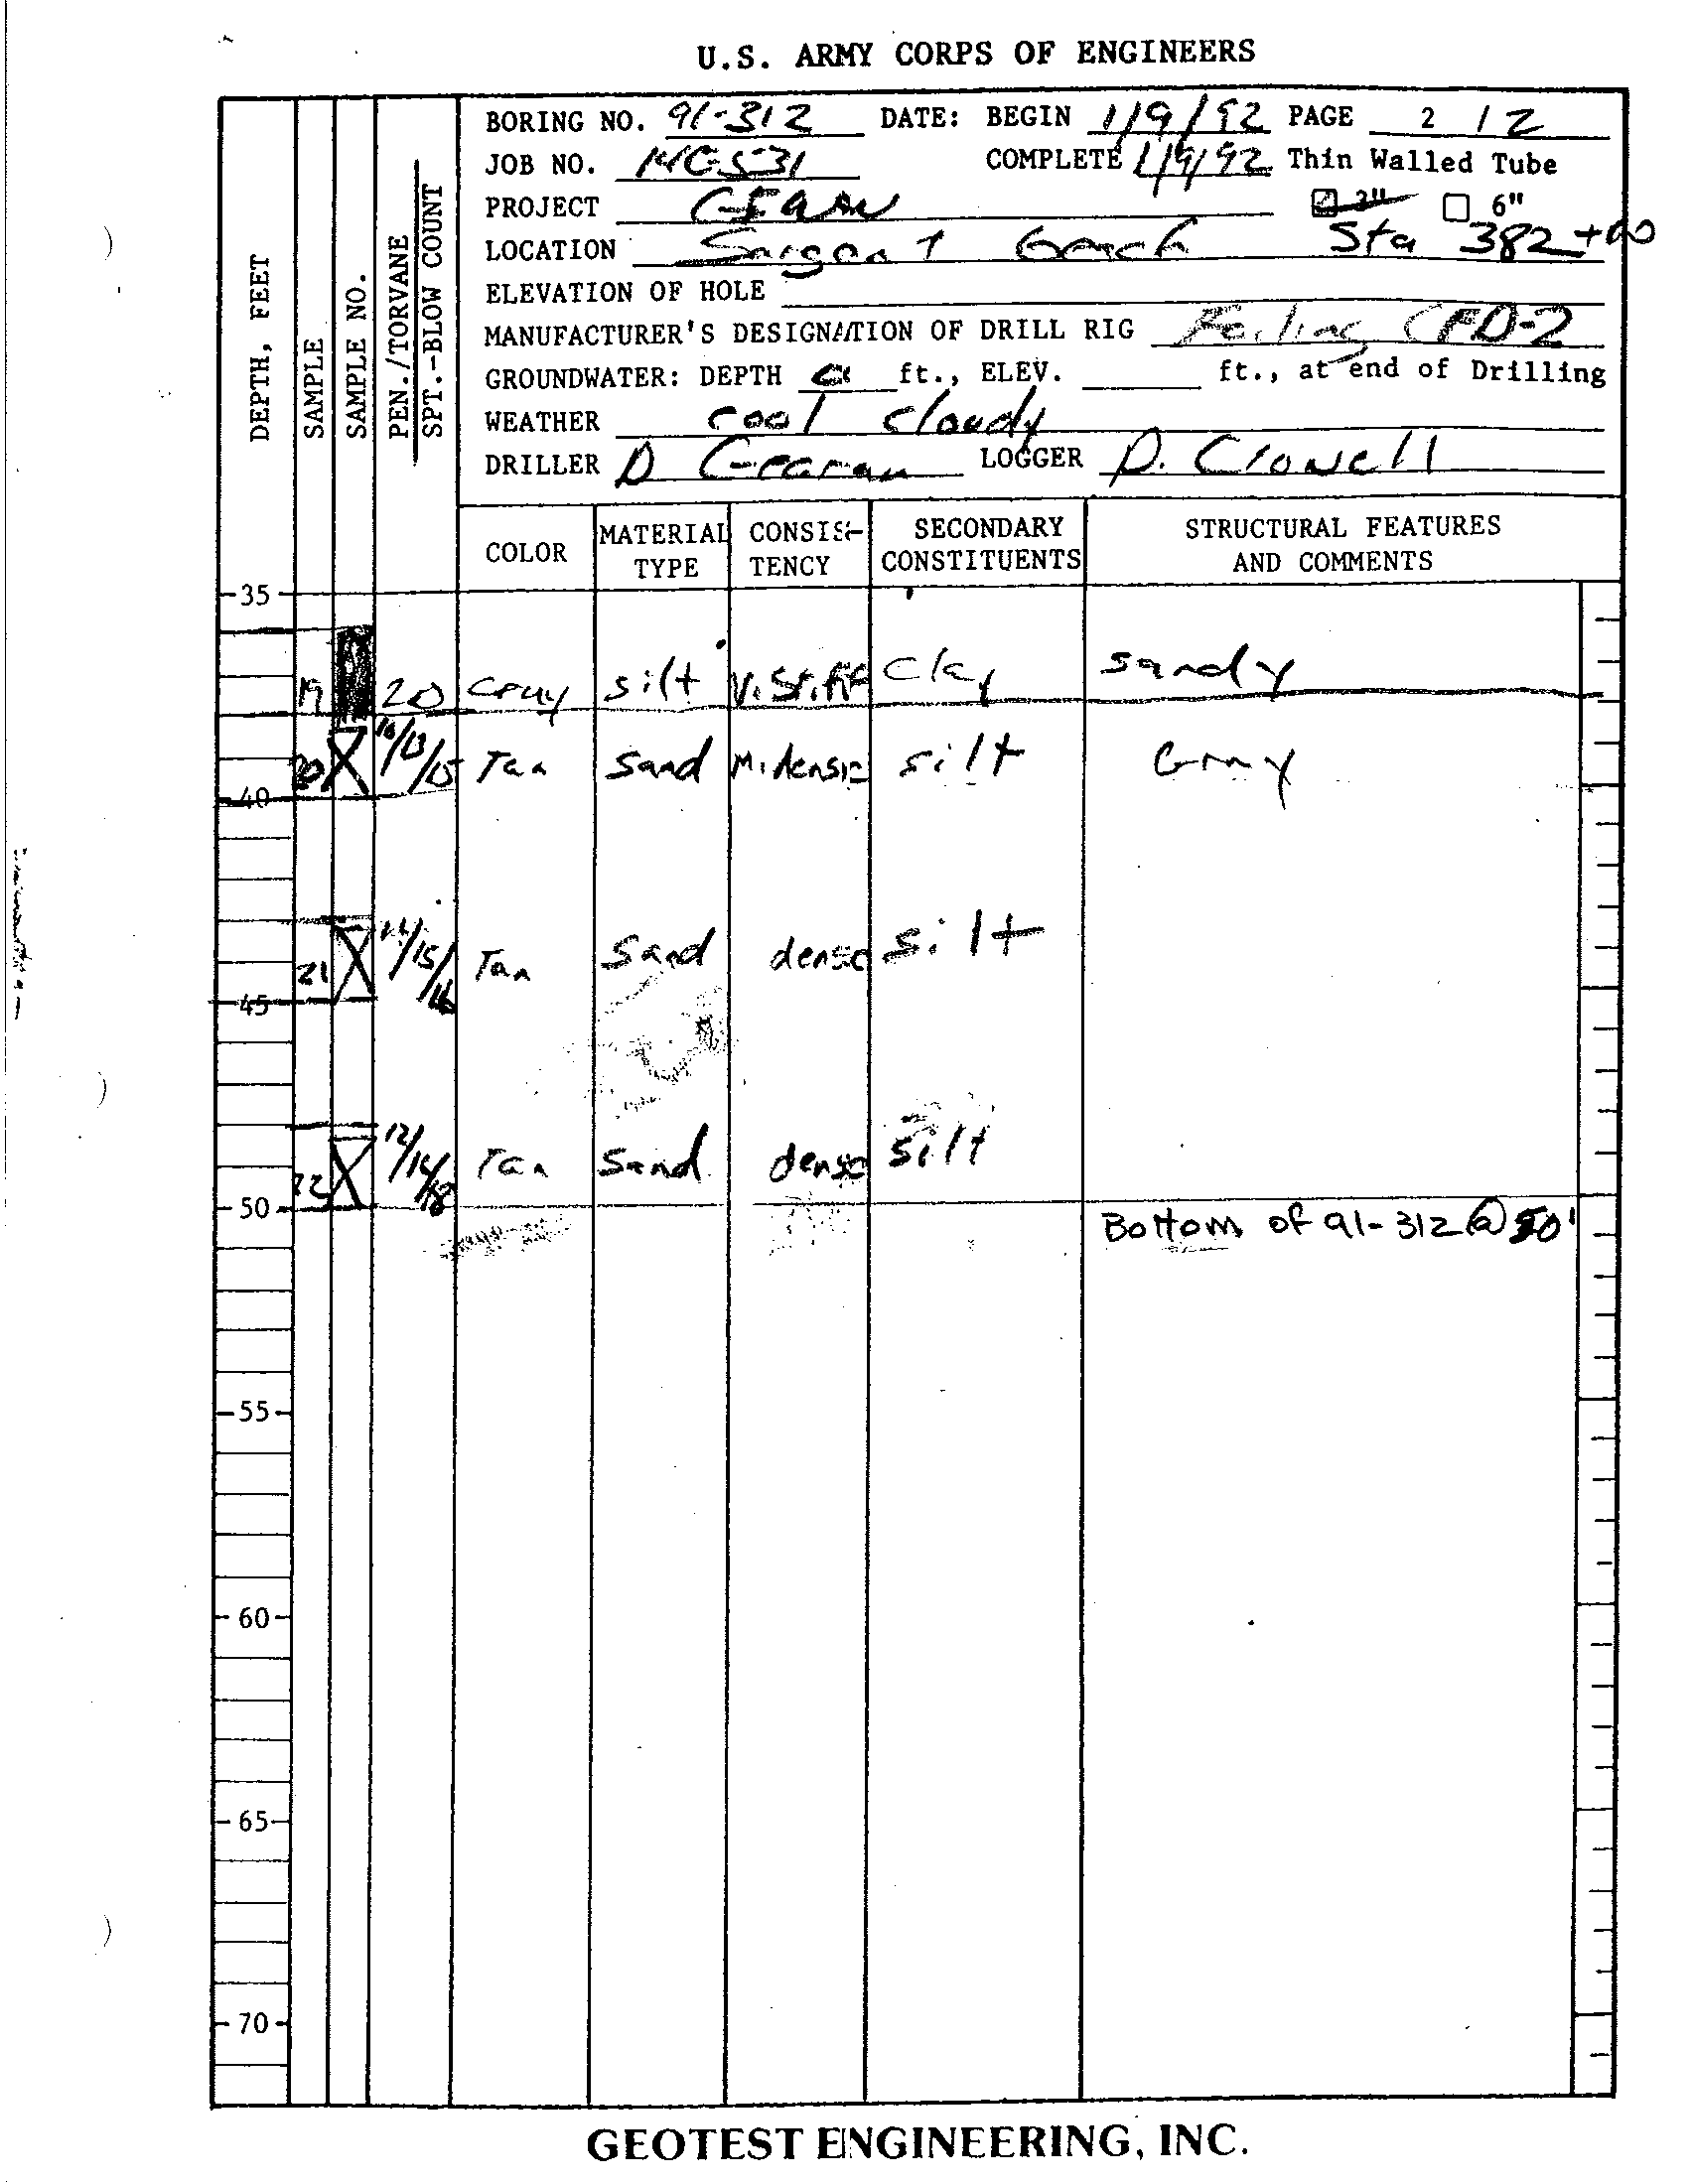 U.S. ARMY CORPS OF ENGINEERS
BORING NO. 91-312 DATE: BEGIN 1/9/92 PAGE 2 / 2
JOB NO. COMPLETE 1/9/92 Thin Walled Tube
PROJECT 3" 6"
LOCATION Sargent Beach Sta 382+00
ELEVATION OF HOLE
MANUFACTURER'S DESIGNATION OF DRILL RIG Failing CFD-2
GROUNDWATER: DEPTH ft., ELEV. ft., at end of Drilling
WEATHER cool cloudy
DRILLER D LOGGER D. Crowell
DEPTH, FEET
SAMPLE
SAMPLE NO.
PEN./TORVANE
SPT.-BLOW COUNT
COLOR MATERIAL TYPE CONSIS-TENCY SECONDARY CONSTITUENTS STRUCTURAL FEATURES AND COMMENTS
35
19 20 Gray silt V. Stiff Clay sandy
20 10/13/15 Tan Sand M. dense silt Gray
40
21 15/16 Tan Sand dense silt
45
22 12/14/18 Tan Sand dense silt
50
Bottom of 91-312 @ 50'
55
60
65
70
GEOTEST ENGINEERING, INC.